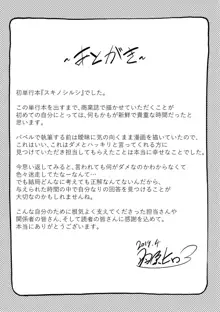 ~あとがき~
初単行本『スキノシルシ』でした。
この単行本を出すまで、商業誌で描かせていただくことが
初めての自分にとっては、何もかもが新鮮で貴重な時間でした。
バベルで執筆する前は曖昧に気の向くまま漫画を描いていたので、
これはいい、これはダメとハッキリと言って
いただけで担当してもらえたことは本当に幸せなことでした。
今思い返してみると、言われても何がダメなのかわからなくて
色々迷走してたな~なんて…
でも結局どんなに考えても正解なんてないんだから、
与えられた時間の中で自分なりの回答を見つけることが
大切なのかもしませんね。
こんな自分のために根気よく支えてくださった担当さんや
関係者の皆さん、そして読者の皆さんに感謝を込めて、
本当にありがとうございます。
2017.4